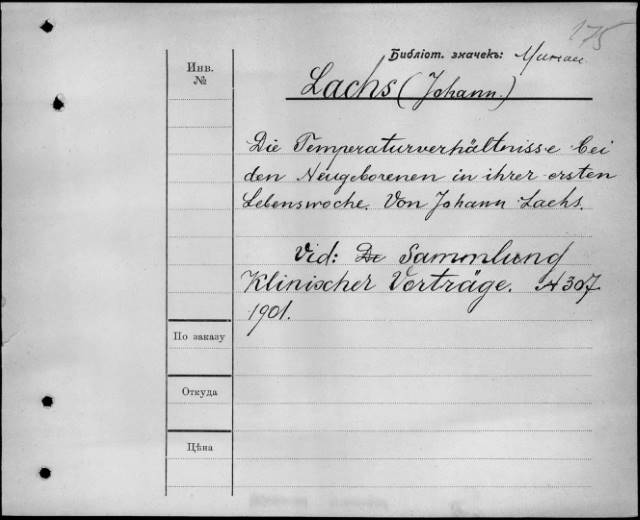 175
Библіот. значекъ:
Инв.
№
Lachs (Johann.)
Die Temperaturverhältnisse bei
den Neugeborenen in ihrer ersten
Lebenswoche. Von Johann Lachs.
Vid: De Sammlung
Klinischer Vorträge. N 307
1901.
По заказу
Откуда
Цѣна